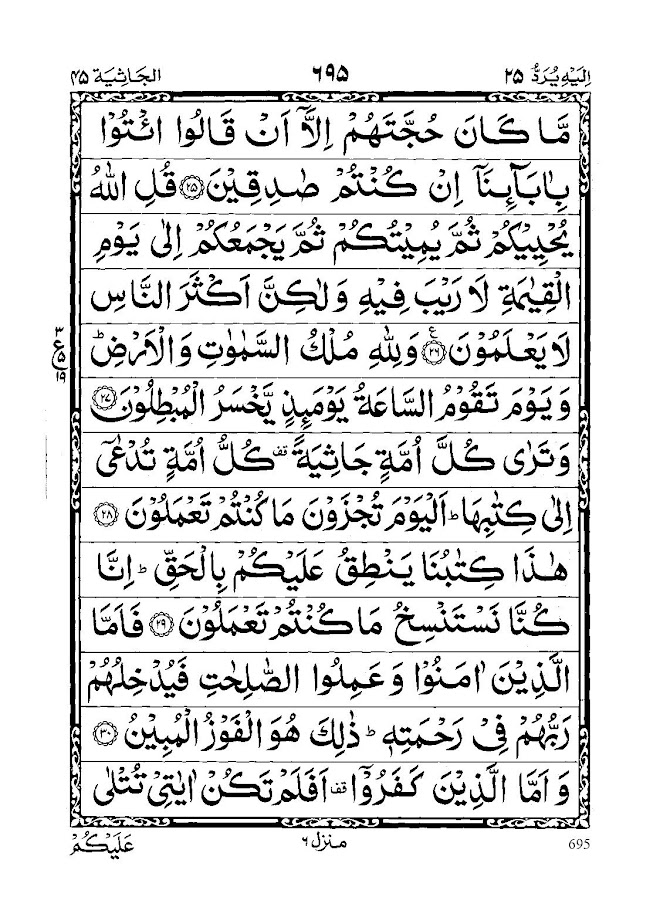 اِلَيْهِ يُرَدُّ ۲۵
۶۹۵
الجَاثِيَة ۴۵
مَّا كَانَ حُجَّتَهُمْ اِلَّاۤ اَنْ قَالُوا ائْتُوْا
بِاٰبَآئِنَاۤ اِنْ كُنْتُمْ صٰدِقِيْنَ ﴿۲۵﴾ قُلِ اللّٰهُ
يُحْيِيْكُمْ ثُمَّ يُمِيْتُكُمْ ثُمَّ يَجْمَعُكُمْ اِلٰى يَوْمِ
الْقِيٰمَةِ لَا رَيْبَ فِيْهِ وَلٰكِنَّ اَكْثَرَ النَّاسِ
لَا يَعْلَمُوْنَ ﴿۲۶﴾ ع وَلِلّٰهِ مُلْكُ السَّمٰوٰتِ وَالْاَرْضِ ؕ
۳ ع ۵ ۱۹
وَيَوْمَ تَقُوْمُ السَّاعَةُ يَوْمَئِذٍ يَّخْسَرُ الْمُبْطِلُوْنَ ﴿۲۷﴾
وَتَرٰى كُلَّ اُمَّةٍ جَاثِيَةً قف كُلُّ اُمَّةٍ تُدْعٰۤى
اِلٰى كِتٰبِهَا ؕ اَلْيَوْمَ تُجْزَوْنَ مَا كُنْتُمْ تَعْمَلُوْنَ ﴿۲۸﴾
هٰذَا كِتٰبُنَا يَنْطِقُ عَلَيْكُمْ بِالْحَقِّ ؕ اِنَّا
كُنَّا نَسْتَنْسِخُ مَا كُنْتُمْ تَعْمَلُوْنَ ﴿۲۹﴾ فَاَمَّا
الَّذِيْنَ اٰمَنُوْا وَعَمِلُوا الصّٰلِحٰتِ فَيُدْخِلُهُمْ
رَبُّهُمْ فِيْ رَحْمَتِهٖ ؕ ذٰلِكَ هُوَ الْفَوْزُ الْمُبِيْنُ ﴿۳۰﴾
وَاَمَّا الَّذِيْنَ كَفَرُوْۤا قف اَفَلَمْ تَكُنْ اٰيٰتِيْ تُتْلٰى
عَلَيْكُمْ
منزل ۶
695